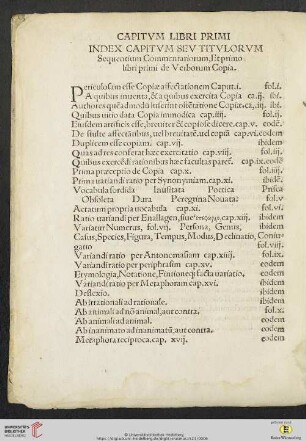 CAPITVM LIBRI PRIMI
INDEX CAPITVM SEV TITVLORVM
Sequentium Commentariorum, Et primo
libri primi de Verborum Copia.
Periculosum esse Copiæ affectationem Caput.i. fol.i.
A quibus inuenta, & a quibus exercita Copia ca.ij. ibi.
Authores quēadmodū luserint ostētatione Copiæ.ca.iij. ibi.
Quibus uitio data Copia immodica cap.iiij. fol.ij.
Eiusdem artificis esse, breuiter & copiose dicere.cap.v. eodē.
De stulte affectantibus, uel breuitatē uel copiā cap.vi. eodem
Duplicem esse copiam. cap.vij. ibidem
Quas ad res conferat hæc exercitatio cap.viij. fol.iij.
Quibus exercēdi rationibus hæc facultas paretur. cap.ix. eodē
Prima præceptio de Copia cap.x. fol.iiij.
Prima uariandi ratio per Synonymiam.cap.xi. ibidē.
Vocabula sordida Inusitata Poetica Prisca
Obsoleta Dura Peregrina Nouata: fol.v
Aetatum propria uocabula cap.xi. fol.vi.
Ratio uariandi per Enallagen, siue cap.xiij. ibidem
Variatur Numerus, fol.vij. Persona, Genus,
Casus, Species, Figura, Tempus, Modus, Declinatio, Coniu-
gatio fol.viij.
Variandi ratio per Antonomasiam cap.xiiij. fol.x.
Variandi ratio per periphrasim cap.xv. eodem
Etymologia, Notatione, Finitioneq; facta uariatio, eodem
Variandi ratio per Metaphoram cap.xvi. ibidem
Deflexio. ibidem
Ab irrationali ad rationale. ibidem
Ab animali ad nō animal, aut contra. fol.xi.
Ab animali ad animal. eodem
Ab inanimato ad inanimatū, aut contra. eodem
Metaphora reciproca. cap. xvij. eodem
UNIVERSITÄTS-
BIBLIOTHEK
HEIDELBERG
© Universitätsbibliothek Heidelberg